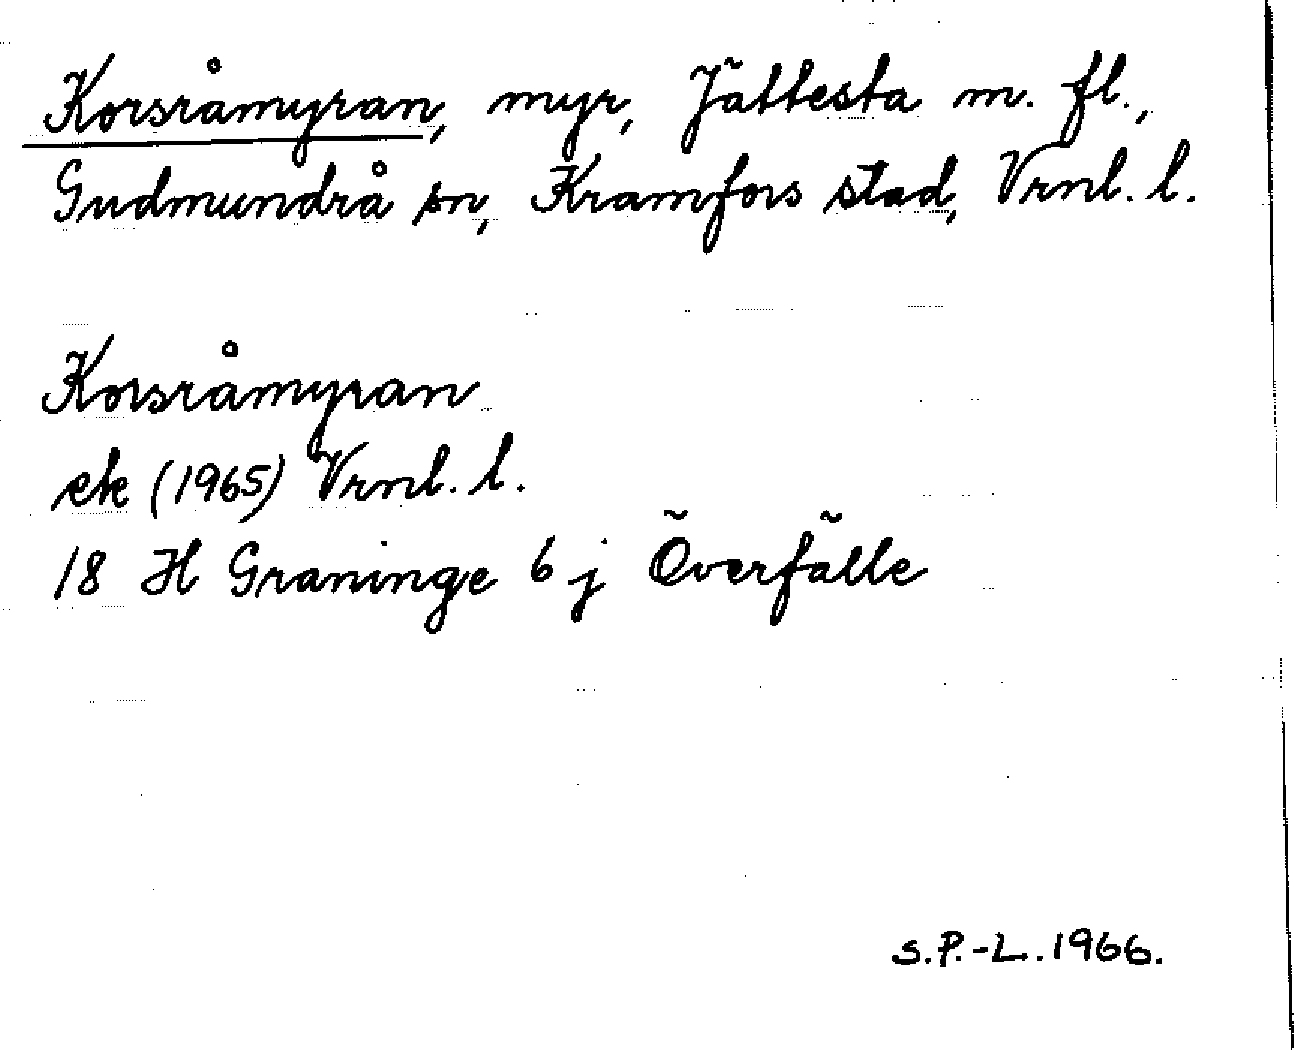 Korsråmyran, myr, Jättesta m. fl.,
Gudmundrå sn, Kramfors stad, Vrnl. l.
Korsråmyran
ek (1965) Vrnl. l.
18 H Graninge 6 j Överfälle
S.P.-L. 1966.